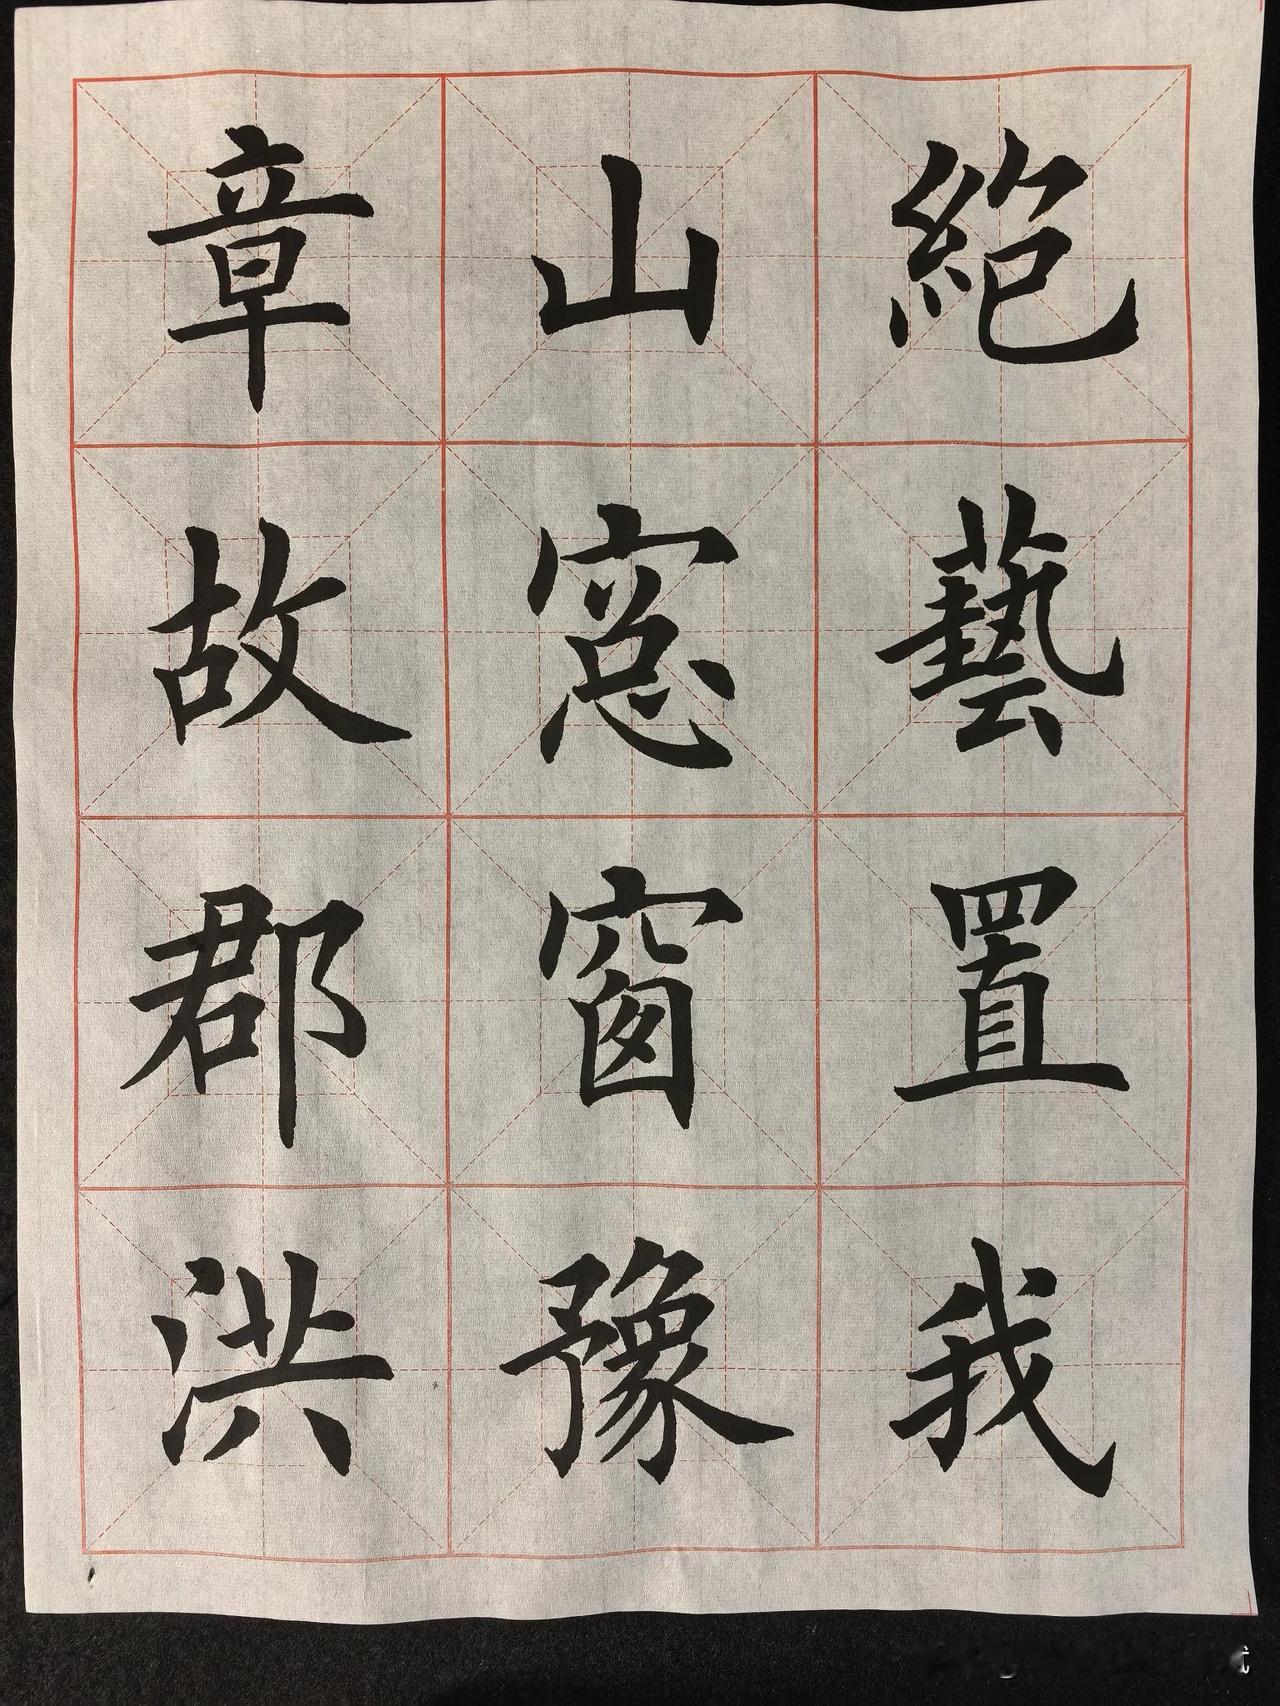 絶藝置我
山窓窗豫
章故郡洪